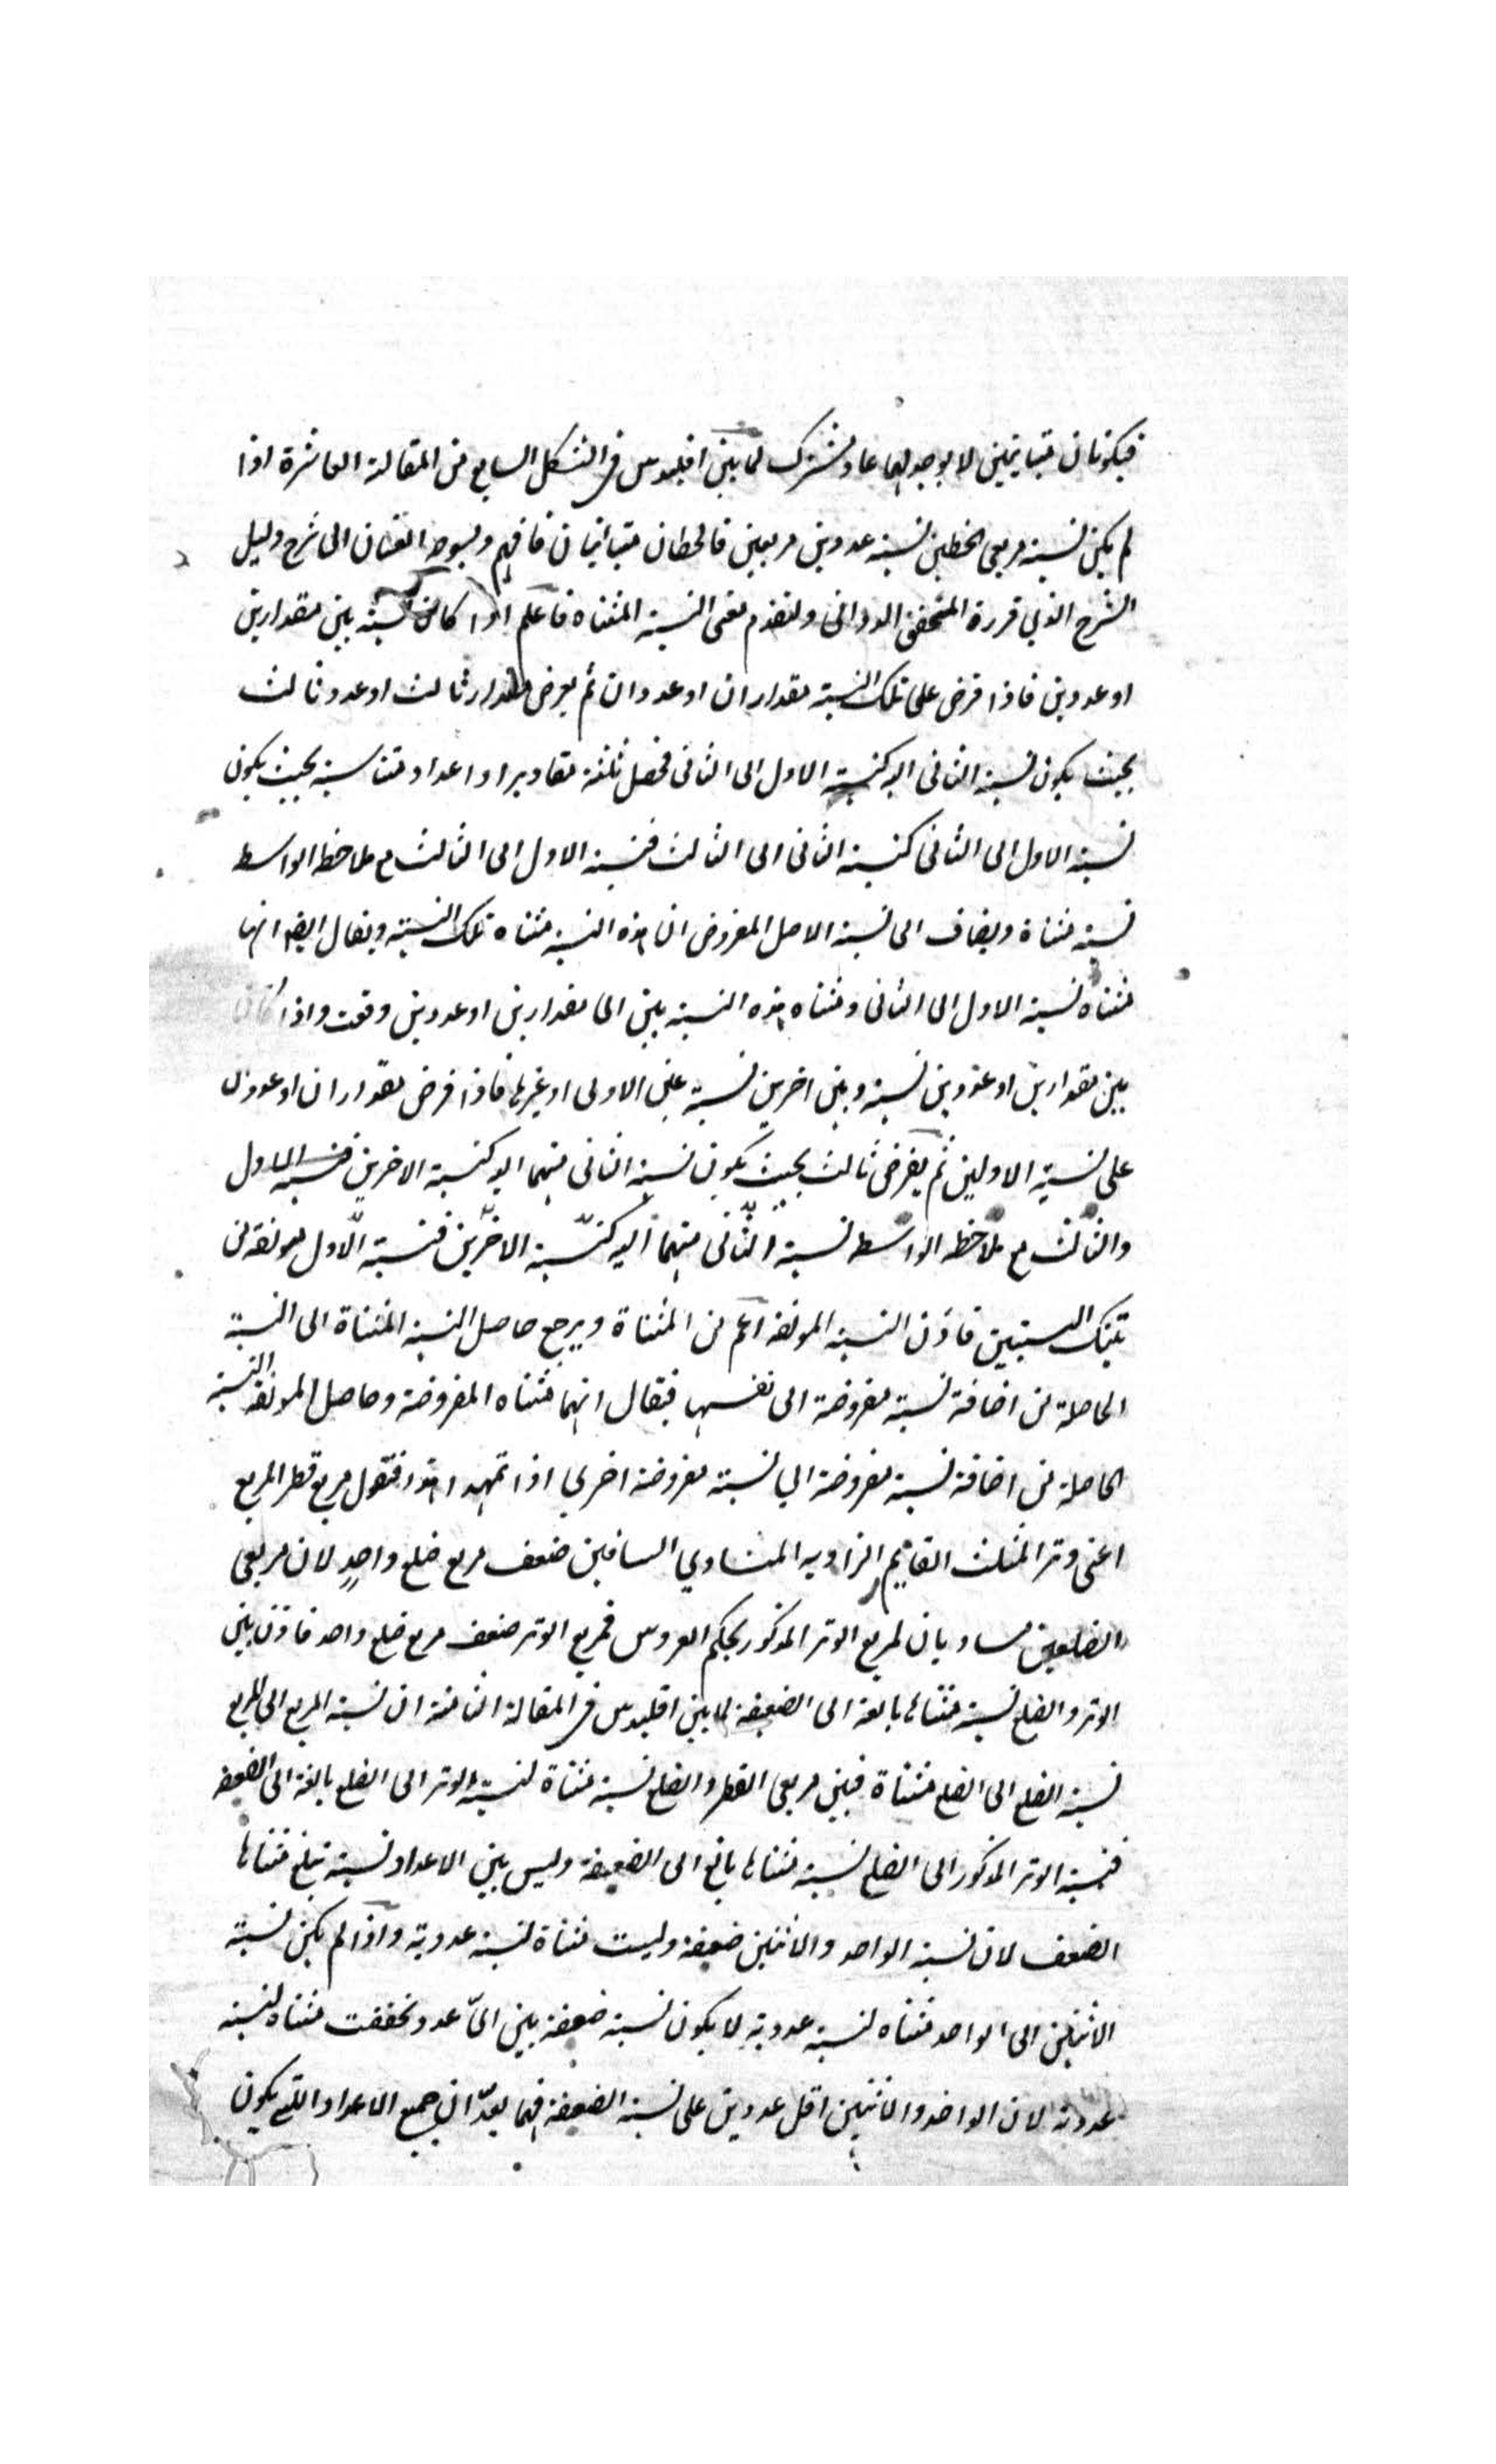 فيكونان متباينين لا يوجد لهما عاد مشترك لما بين اقليدس فى الشكل السابع من المقالة العاشرة اذا
لم يكن نسبة مربعى الخطين نسبة عددين مربعين فالخطان متباينان فافهم ولنعوض العنان الى شرح دليل
الشرح الذي قرره المحقق الدوانى ولنقدم معنى النسبة المثناه فاعلم اذا كان نسبة بين مقدارين
او عددين فاذا فرض على تلك النسبة مقداران او عددان ثم يعرض مقدار ثالث او عدد ثالث
بحيث يكون نسبة الثانى اليه كنسبة الاول الى الثانى فحصل ثلثة مقادير او اعداد متناسبة بحيث يكون
نسبة الاول الى الثانى كنسبة الثانى الى الثالث فنسبة الاول الى الثالث مع ملاحظه الواسط
نسبة مثناة ويضاف الى نسبة الاصل المفروض ان هذه النسبة مثناه تلك النسبة ويقال ايضا انها
مثناه نسبة الاول الى الثانى ومثناه هذه النسبة بين اى مقدارين او عددين وقعت واذا كان
بين مقدارين او عددين نسبة وبين اخرين نسبة عين الاولى او غيرها فاذا فرض مقداران او عددان
على نسبة الاولين ثم يفرض ثالث بحيث يكون نسبة الثانى منهما اليه كنسبة الاخرين فنسبة الاول
والثالث مع ملاحظه الواسط نسبة الثانى منهما اليه كنسبة الاخرين فنسبة الاول مولفة من
تينك النسبتين فاذن النسبة المولفه اعم من المثناة ويرجع حاصل النسبة المثناة الى النسبة
الحاصلة من اضافة نسبة مفروضة الى نفسها فيقال انهما مثناه المفروضة وحاصل المولفه النسبة
الحاصلة من اضافة نسبة مفروضة الي نسبة مفروضة اخري اذا تمهد هذا فنقول مربع قطر المربع
اعنى وتر المثلث القايم الزاويه المتساوي الساقين ضعف مربع ضلع واحدٍ لان مربعى
الضلعين مساويان لمربع الوتر المذكور بحكم العروس فمربع الوتر ضعف مربع ضلع واحد فاذن بين
الوتر والضلع نسبة مثناها بالغة الى الضعيفة لما بين اقليدس فى المقالة الثامنة ان نسبة المربع الى المربع
نسبة الضلع الى الضلع مثناة فبين مربعى القطر والضلع نسبة مثناة لنسبة الوتر الى الضلع بالغة الى الضعفه
فنسبة الوتر المذكور الى الضلع نسبة مثناها بالغ الى الضعيفة وليس بين الاعداد نسبة تبلغ مثناها
الضعف لان نسبة الواحد والاثنين ضعيفة وليست مثناة لنسبة عددية واذا لم يكن نسبة
الاثنين الى الواحد مثناه لنسبة عددية لا يكون نسبة ضعيفة بين اىّ عدد تحققت مثناه لنسبة
عددية لان الواحد والاثنين اقل عددين على نسبة الضعيفة فهما يعدّان جميع الاعداد التى يكون